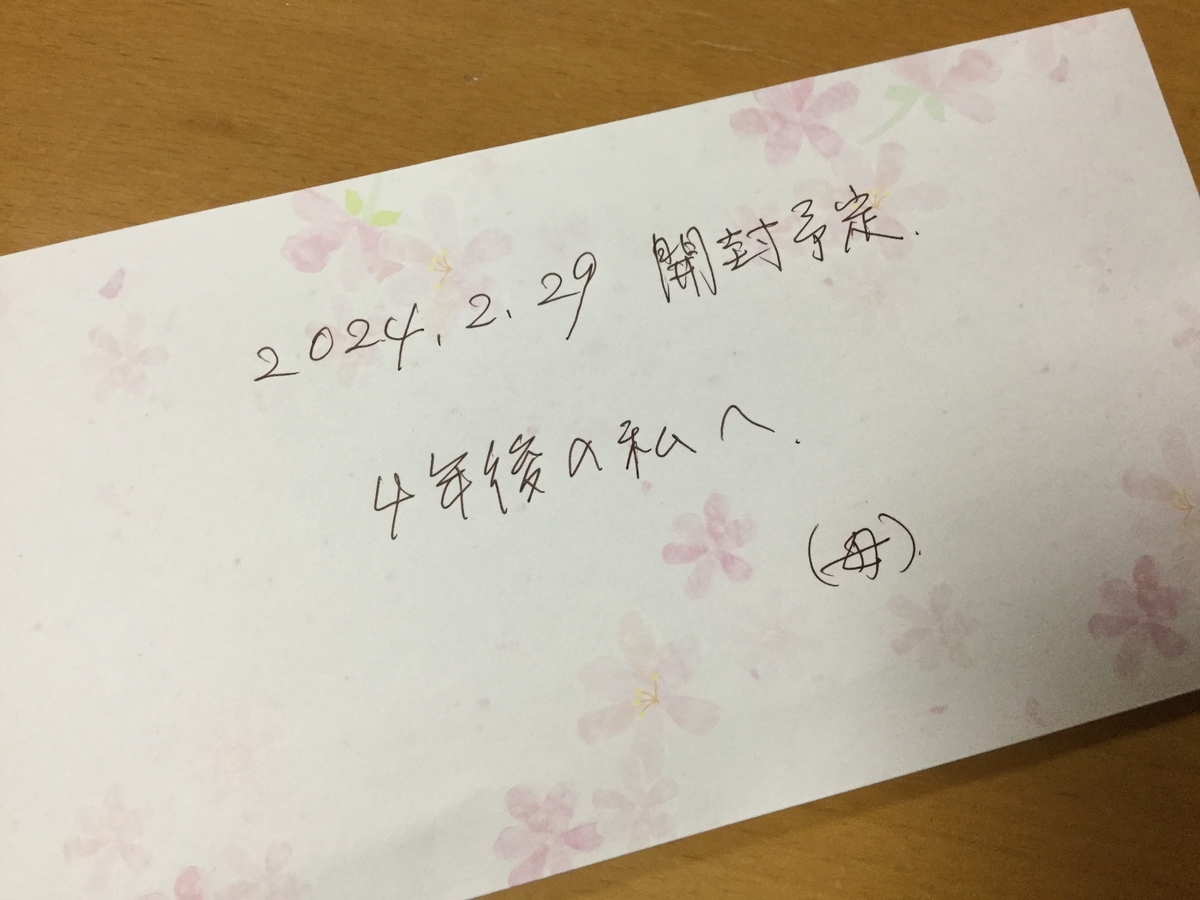 2024.2.29 開封予定.
4年後の私へ.
(母).